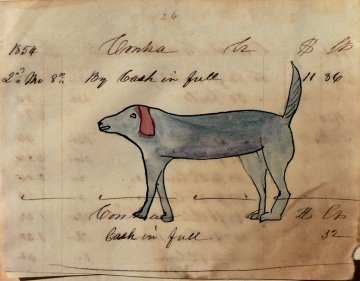 26
1854 Contra Cr $ Cts
2nd Mo 8th By Cash in full 11 36
Con $ Cts
Cash in full 32